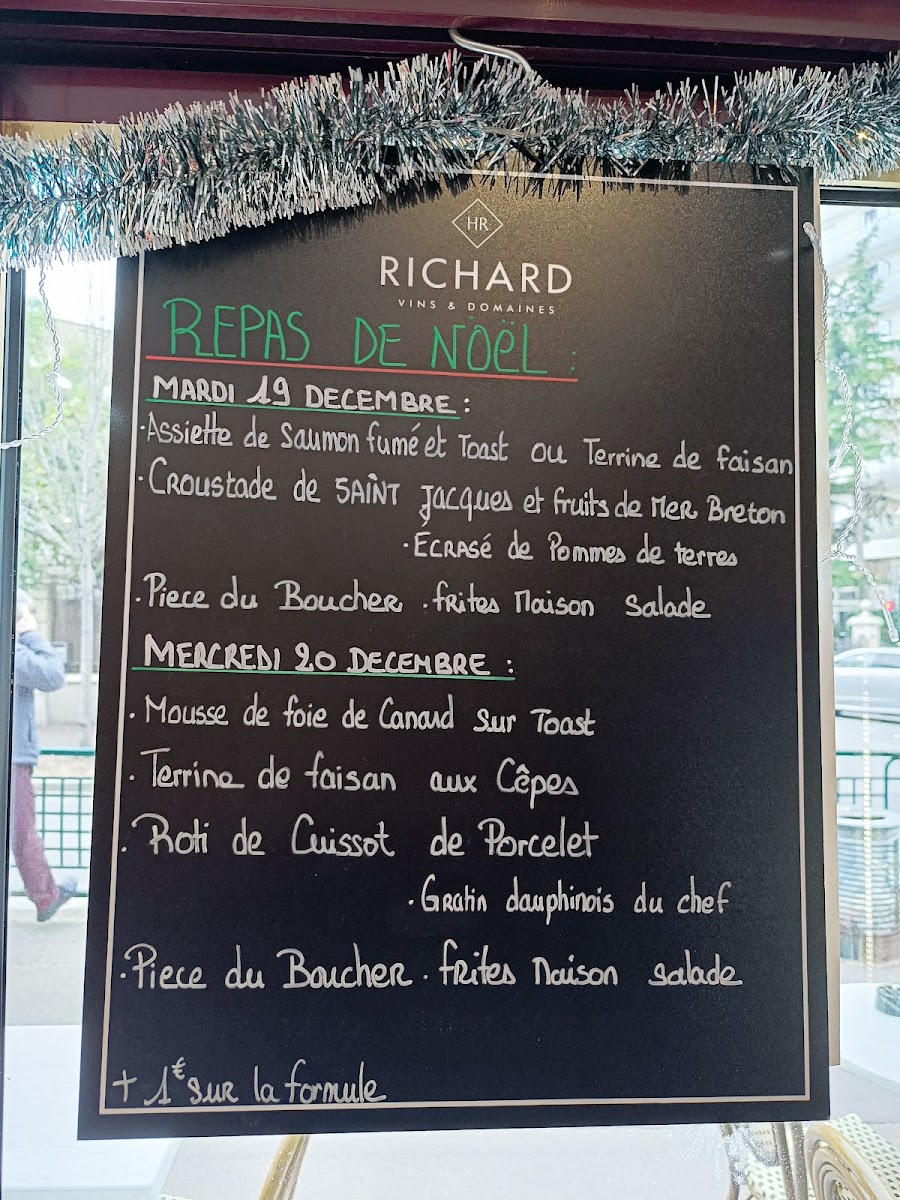 HR
RICHARD
VINS & DOMAINES
REPAS DE NOËL :
MARDI 19 DECEMBRE :
· Assiette de Saumon fumé et Toast ou Terrine de faisan
· Croustade de SAINT Jacques et fruits de Mer Breton
· Écrasé de Pommes de terres
· Piece du Boucher · frites Maison Salade
MERCREDI 20 DECEMBRE :
· Mousse de foie de Canard Sur Toast
· Terrine de faisan aux Cêpes
· Roti de Cuissot de Porcelet
· Gratin dauphinois du chef
· Piece du Boucher · frites Maison salade
+ 1€ sur la formule